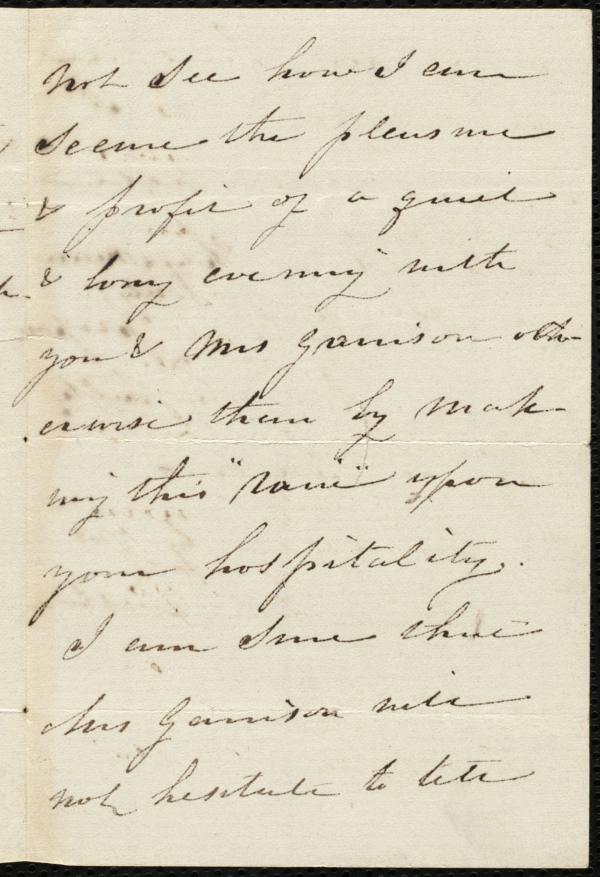 not see how I can
secure the pleasure
& profit of a quiet
& long evening with
you & Mrs Garrison oth-
erwise than by mak-
ing this "raid" upon
your hospitality.
I am sure that
Mrs Garrison will
not hesitate to